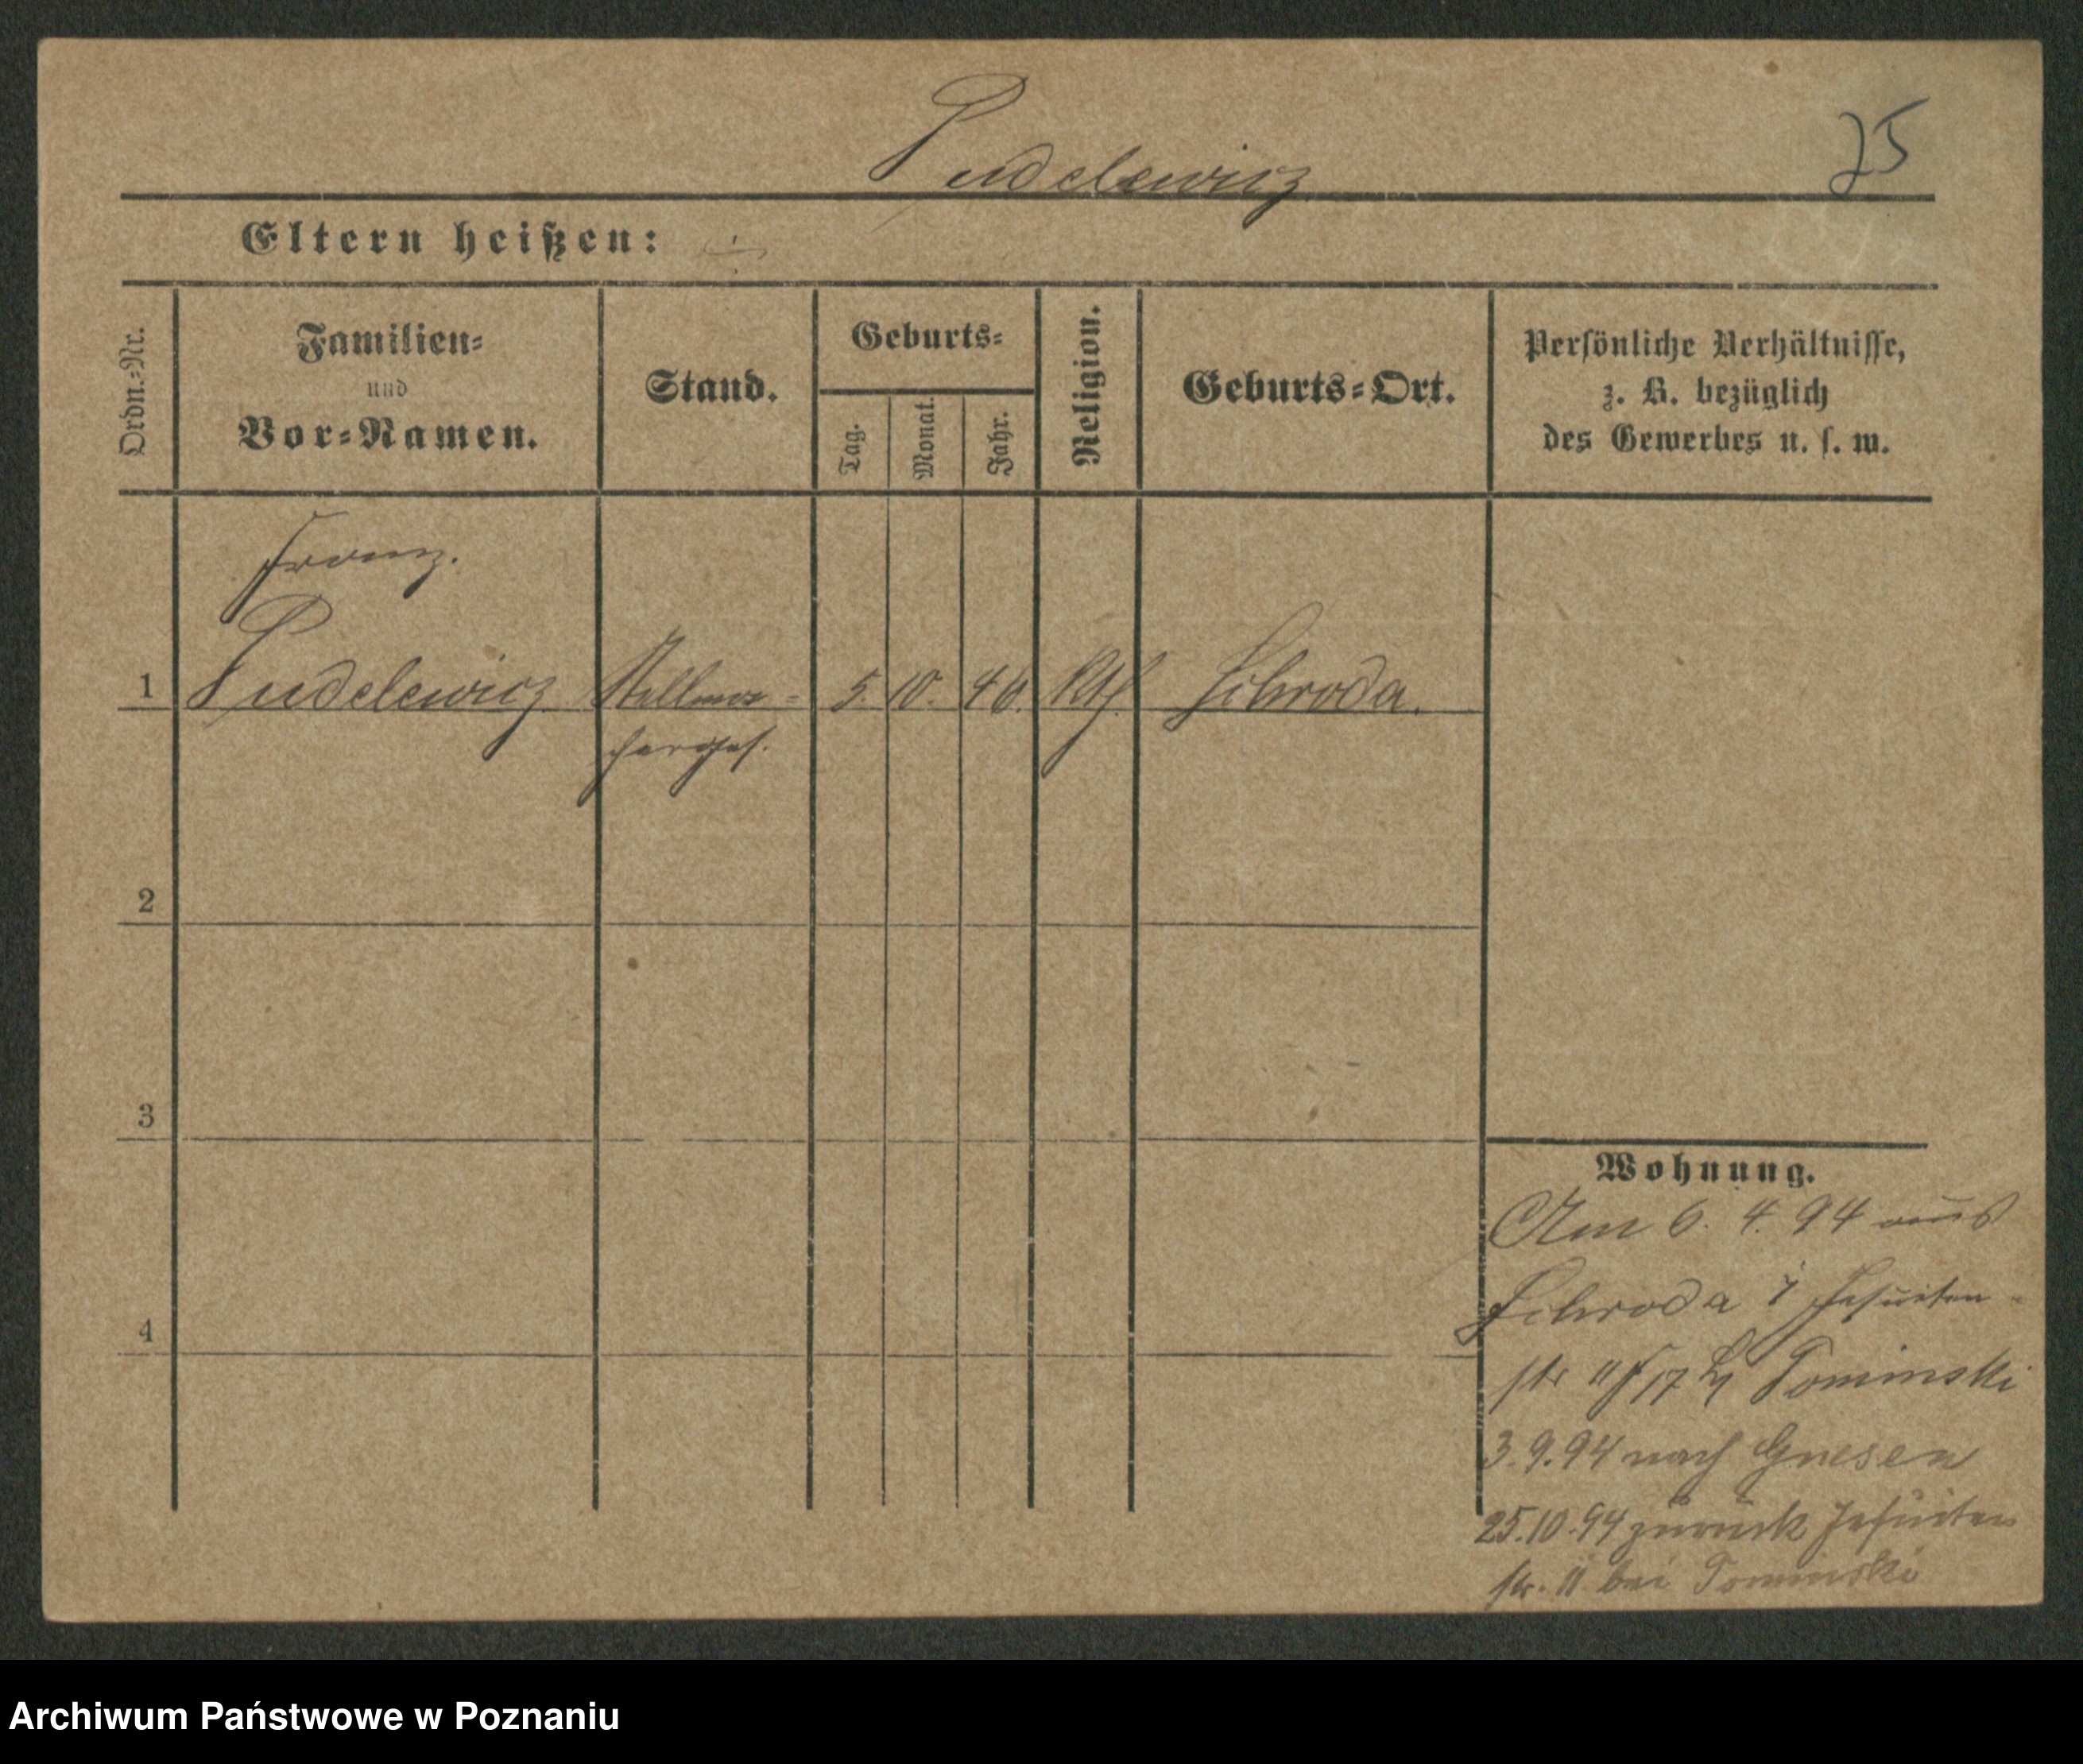 Pudelewicz
25
Eltern heißen:
Ordn.=Nr.
Familien=
und
Vor=Namen.
Stand.
Geburts=
Tag.
Monat.
Jahr.
Religion.
Geburts=Ort.
Persönliche Verhältnisse,
z. B. bezüglich
des Gewerbes u. s. w.
Franz.
1 Pudelewicz Stellma- 5. 10. 46. Kth. Schroda.
cherges.
2
3
4
Wohnung.
Am 6. 4. 94 aus
Schroda i Jesuiten-
str 11 17 Tominski
3.9.94 nach Gnesen
25.10.94 zurück Jesuiten
str. 11 bei Tominski
Archiwum Państwowe w Poznaniu